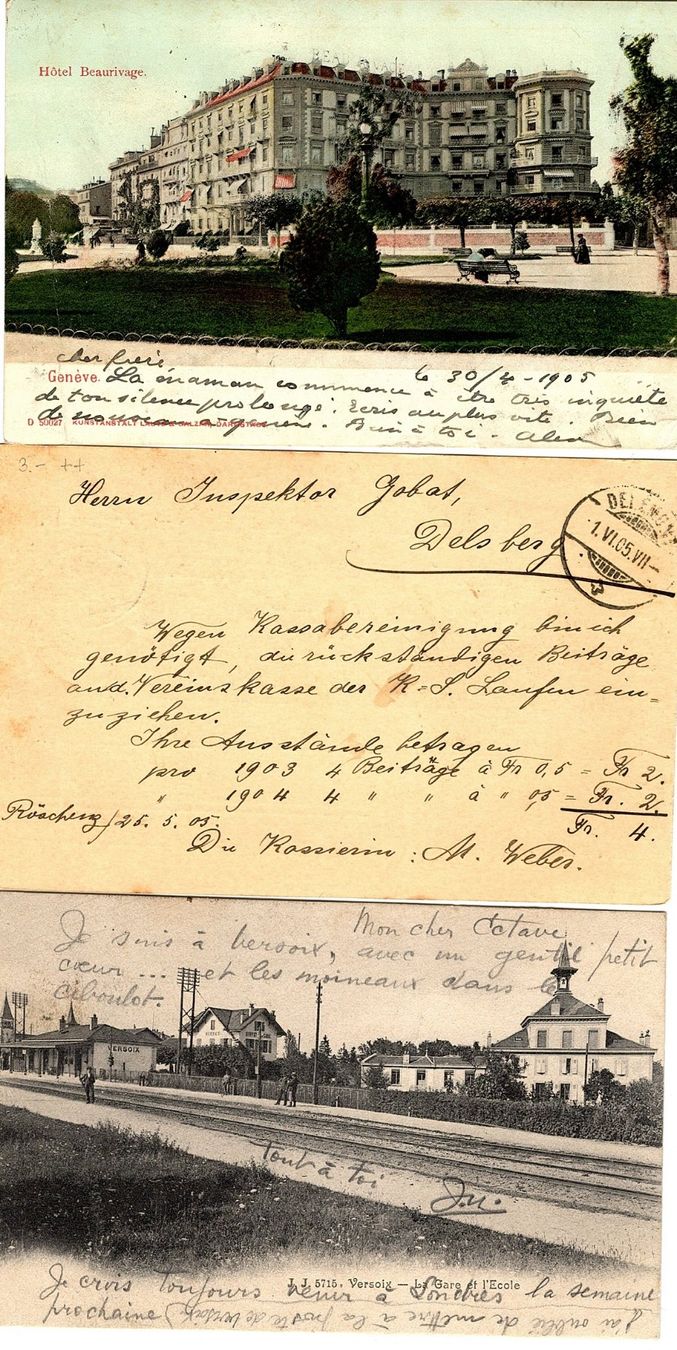 Hôtel Beaurivage.
cher frère
Genève. le 30/4-1905
La maman commence à être très inquiète
de ton silence prolongé. Ecris au plus vite. Bien
de nouveau. Bien à toi.
D 50027 KUNSTANSTALT DARMSTADT
3.- ++
Herrn Inspektor Gobat,
Delsberg.
1.VI.05.VII-
Wegen Kassabereinigung bin ich
genötigt, die rückständigen Beiträge
and. Vereinskasse der K=S. Laufen ein=
zuziehen.
Ihre Ausstände betragen
pro 1903 4 Beiträge à Fr 0,5 = Fr 2.
" 1904 4 " " à " 0,5 = Fr. 2.
Fr. 4.
Röschenz/25. 5. 05.
Die Kassierin: M. Weber.
Mon cher Octave
Je suis à Versoix, avec un gentil petit
cœur ... et les moineaux dans le
ciboulot.
VERSOIX
tout à toi
J. J. 5715. Versoix — La Gare et l'Ecole
Je crois toujours venir à Londres la semaine
prochaine
j'ai oublié de mettre à la poste de Versoix